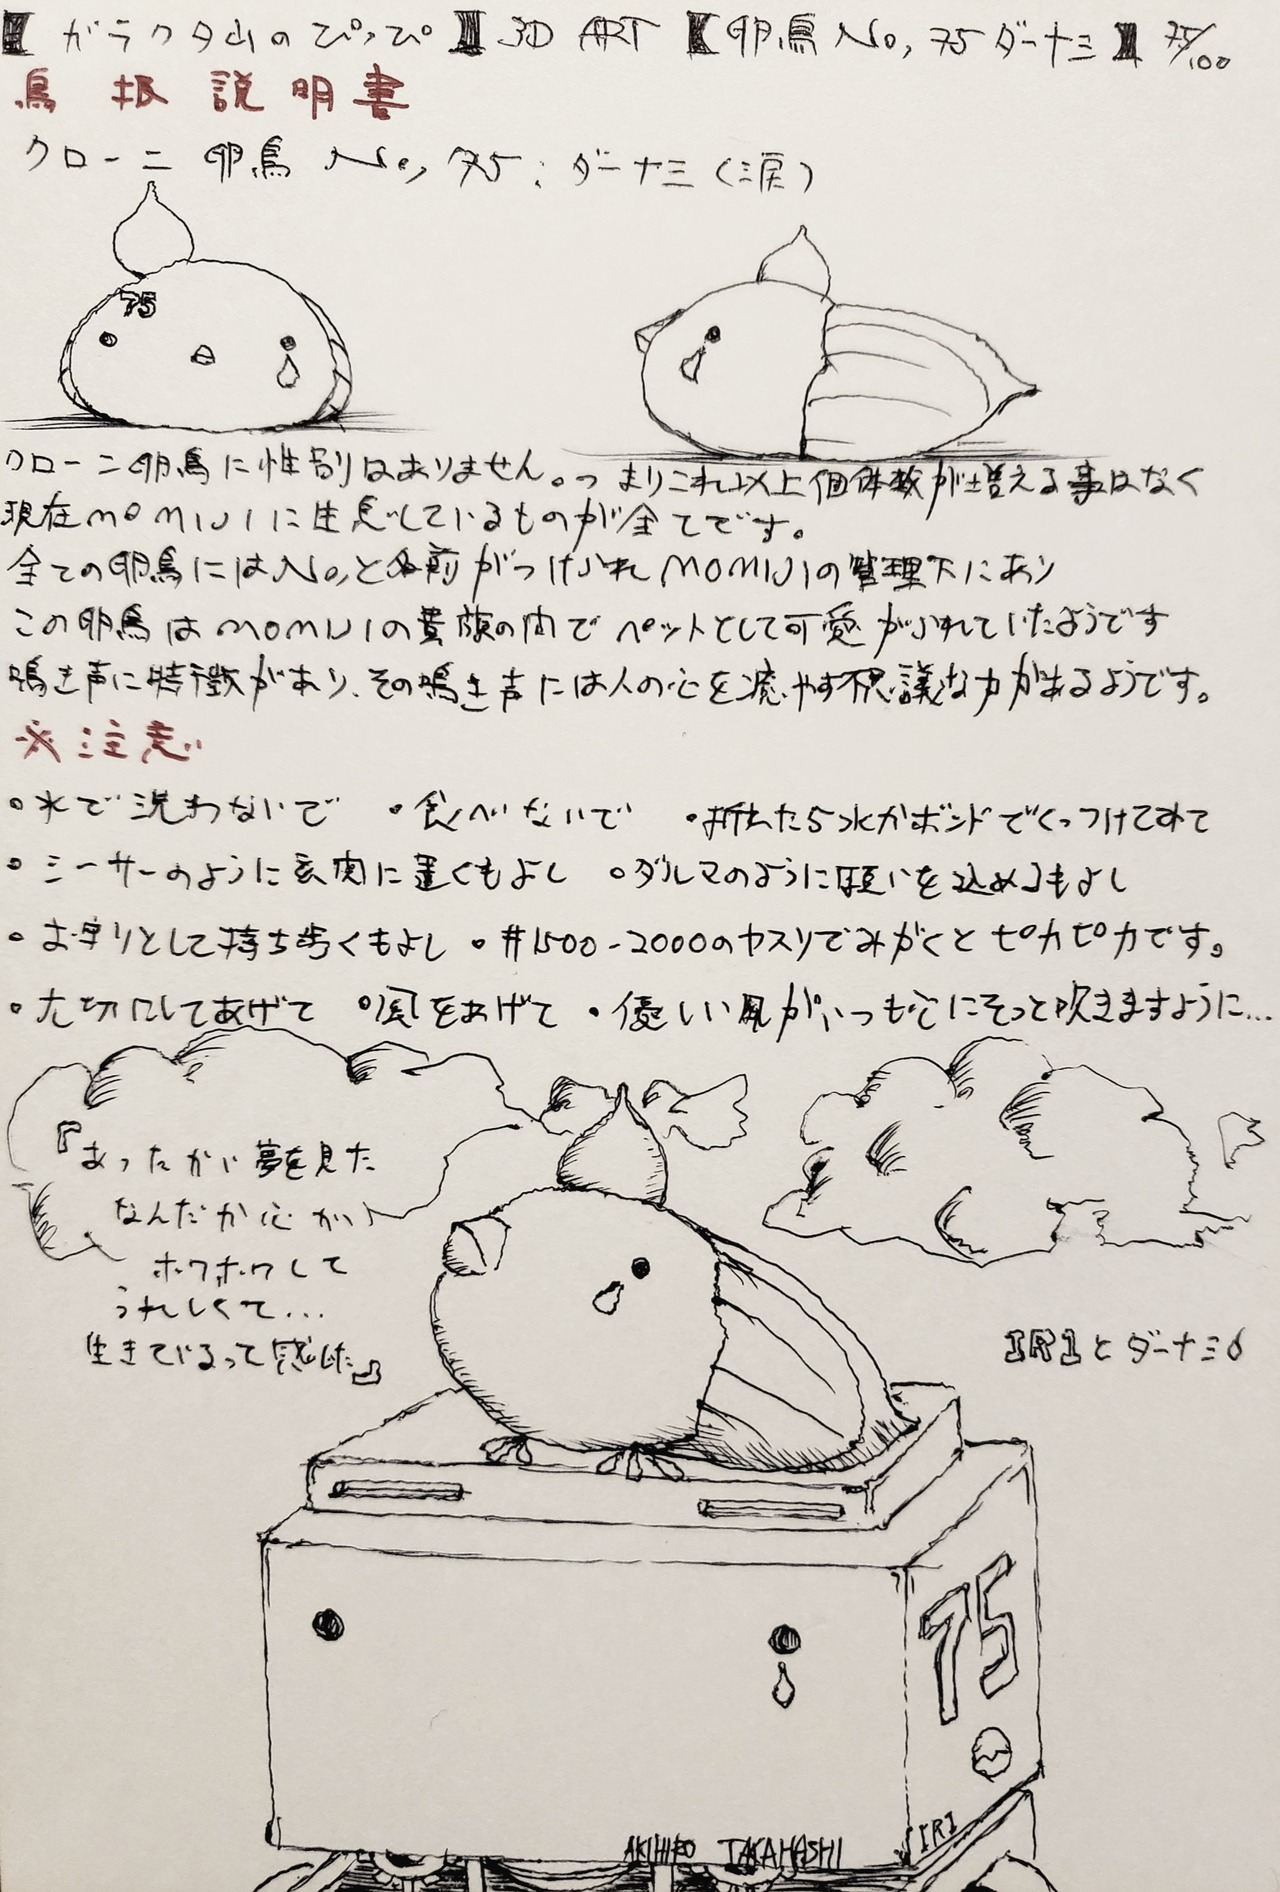 【ガラクタ山のぴっぴ】3D ART【卵鳥 No, 75 ダーナミ】75/100
鳥扱説明書
クローニ卵鳥 No, 75：ダーナミ（涙）
75
クローニ卵鳥に性別はありません。つまりこれ以上個体数が増える事はなく
現在MOMIJIに生息しているものが全てです。
全ての卵鳥にはNo,と名前がつけられMOMIJIの管理下にあり
この卵鳥はMOMIJIの貴族の間でペットとして可愛がられていたようです
鳴き声に特徴があり、その鳴き声には人の心を癒やす不思議な力があるようです。
※注意
・水で洗わないで ・食べないで ・折れたら水かボンドでくっつけてみて
・シーサーのように玄関に置くもよし ・ダルマのように願いを込めるもよし
・お守りとして持ち歩くもよし ・#1500-2000のヤスリでみがくとピカピカです。
・大切にしてあげて ・風をあげて ・優しい風がいつも心にそっと吹きますように…
『あったかい夢を見た
なんだか心が
ホワホワして
うれしくて…
生きているって感じた』
IR1とダーナミ
75
IR1
AKIHIRO TAKAHASHI